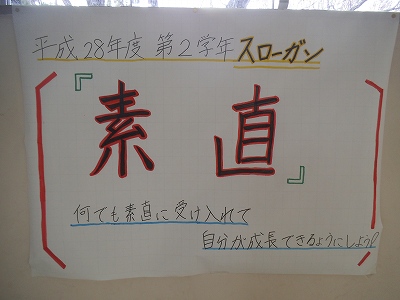 平成28年度 第2学年 スローガン
『素直』
何でも素直に受け入れて
自分が成長できるようにしよう!